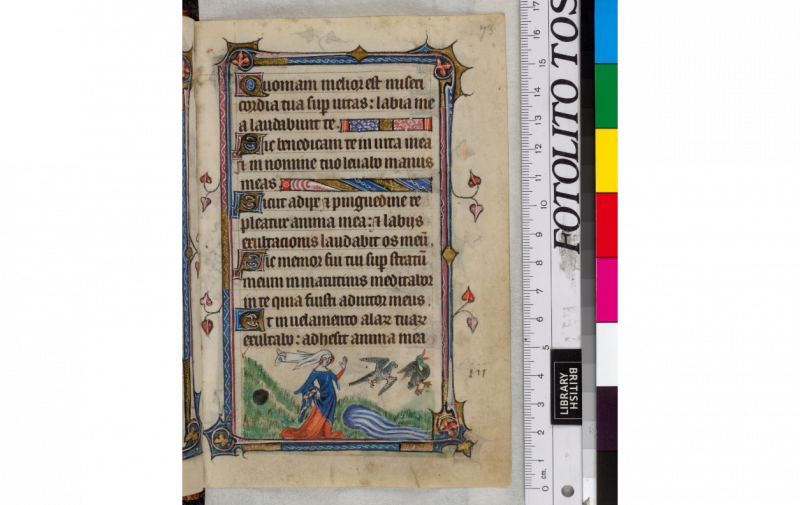 73
Quoniam melior est miseri
cordia tua sup vitas: labia me
a laudabunt te.
Sic benedicam te in vita mea
⁊ in nomine tuo levabo manus
meas
Sicut adipe ⁊ pinguedine re
pleatur anima mea: ⁊ labijs
exultacionis laudabit os meū.
Sic memor fui tui sup stratū
meum in matutinis meditabor
in te quia fuisti adiutor meus.
Et in velamento alaꝝ tuaꝝ
exultabo: adhesit anima mea
FOTOLITO TOS
17
16
15
14
13
12
11
10
9
8
7
6
5
4
3
2
1
0 cm.
BRITISH
LIBRARY